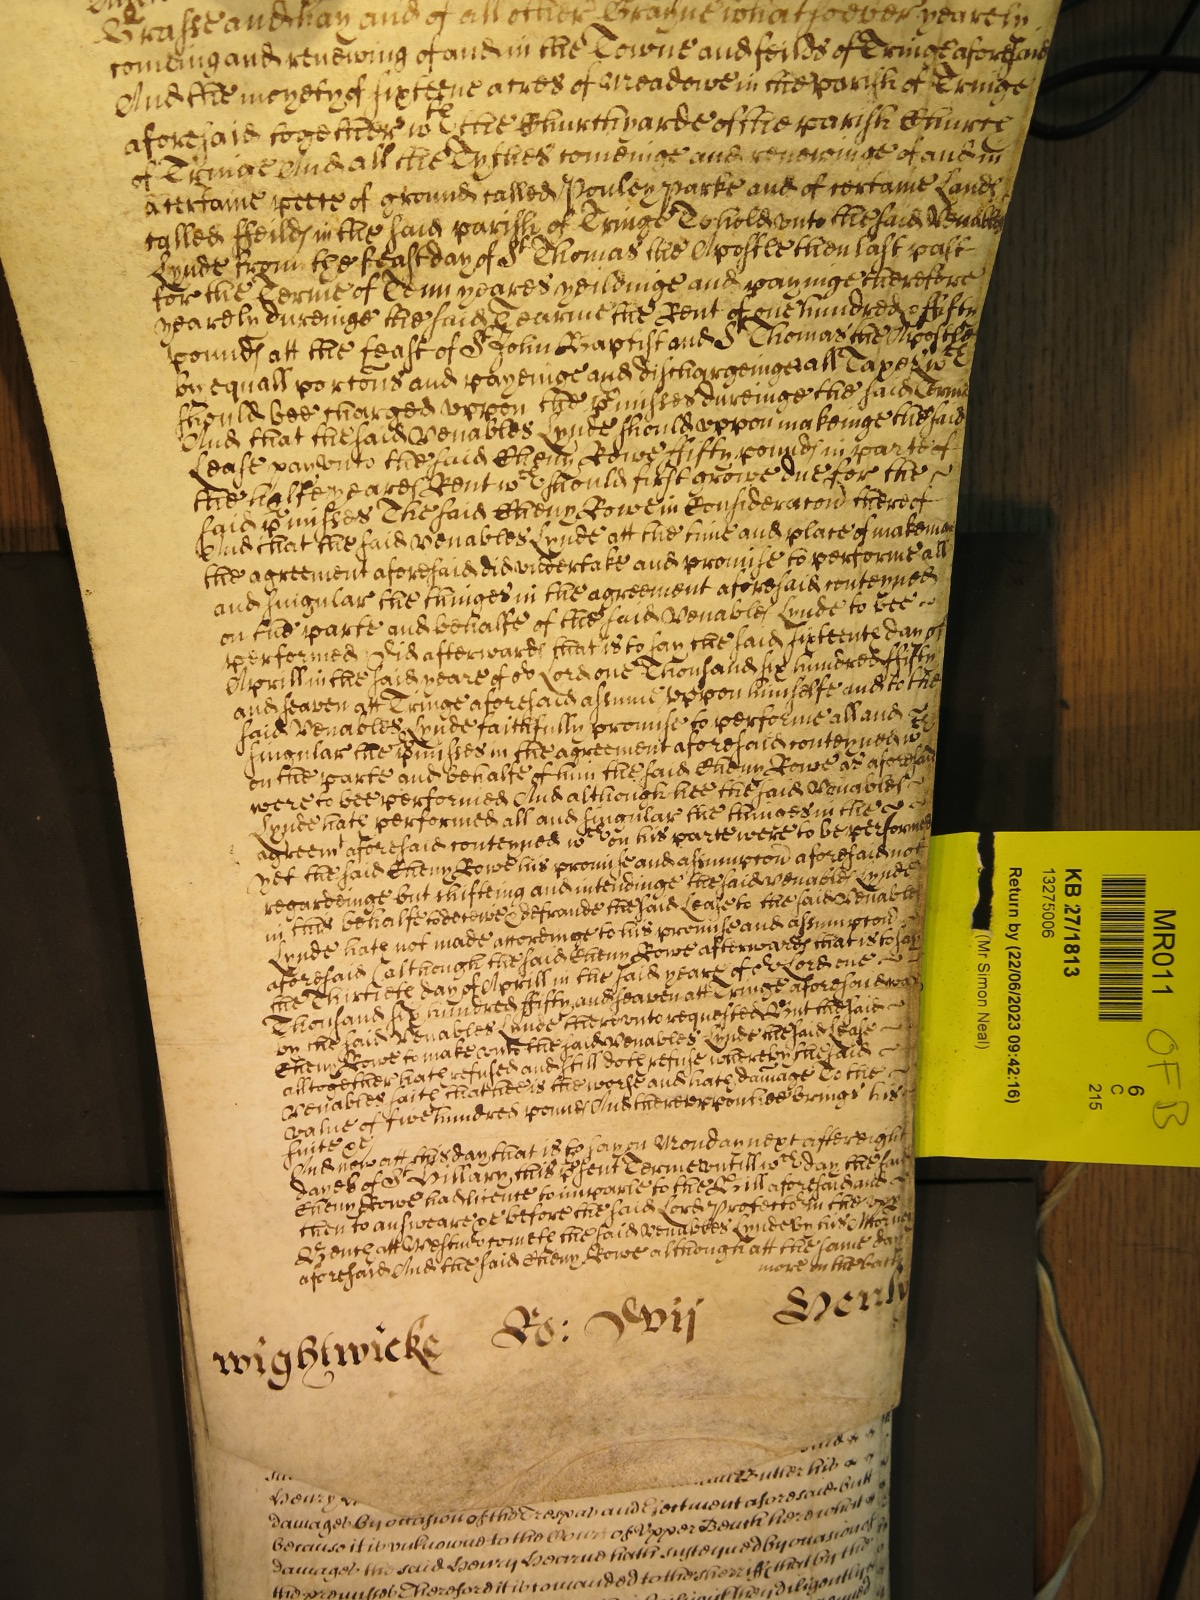 Grasse and hay and of all other Grayne whatsoever yearely
comeing and renewing of and in the Towne and feilds of Tringe aforesaid
And the moyety of sixteene acres of Meadowe in the parish of Tringe
aforesaid together wth the Churchyarde of the parish Church
of Tringe And all the Tythes comeinge and renewinge of and in
a certaine peece of ground called Pouley Parke and of certaine Lands
called ffeilds in the said parish of Tringe To hold unto the said Venables
Lynde from the feast day of St Thomas the Apostle then last past
for the Terme of Tenn yeares yeildinge and payinge therefore
yearely dureinge the said Tearme the Rent of one hundred & fifty
pounds att the feast of St John Baptist and St Thomas the Apostle
by equall portons and payeinge and dischargeinge all Taxes wch
should bee charged uppon the p'misses dureinge the said Terme
And that the said Venables Lynde should uppon makeinge the said
Lease pay unto the said Cheny Rowe ffifty pounds in parte of
the halfe yeares Rent wch should first growe due for the
said p'misses The said Cheny Rowe in Consideracon thereof
And that the said Venables Lynde att the time and place of makeinge
the agreement aforesaid did undertake and promise to performe all
and singular the thinges in the agreement aforesaid conteyned
on the parte and behalfe of the said Venables Lynde to bee
performed Did afterwards that is to say the said sixteenth day of
Aprill in the said yeare of or Lord one Thousand six hundred ffifty
and seaven att Tringe aforesaid assume uppon himselfe and to the
said Venables Lynde faithfully promise to performe all and
singular the p'misses in the agreement aforesaid conteyned wch
on the parte and behalfe of him the said Cheny Rowe as aforesaid
were to bee performed And although hee the said Venables
Lynde hath performed all and singular the thinges in the
agreemt aforesaid conteyned wch on his parte were to be performed
yet the said Cheny Rowe his promise and assumpcon aforesaid not
regardeinge but shifteing and intendinge the said Venables Lynde
in this behalfe to deceive & defraude the said Lease to the said Venables
Lynde hath not made accordinge to his promise and assumpcon
aforesaid (although the said Cheny Rowe afterwards that is to say
the Thirtieth day of Aprill in the said yeare of or Lord one
Thousand six hundred ffifty and seaven att Tringe aforesaid was
by the said Venables Lynde thereunto requested But the said
Cheny Rowe to make unto the said Venables Lynde the said Lease
alltogether hath refused and still doth refuse whereby the said
Venables saith that hee is the worse and hath damage To the
value of five hundred pounds And thereuppon hee brings his
suite &c
And now att this day that is to say on Monday next after eight
dayes of St Hillary this p'sent Terme untill wch day the said
Cheny Rowe had licence to imparle to the Bill aforesaid and
then to answeare &c before the said Lord Protector in the upp
Bench att Westmr cometh the said Venables Lynde by his Attorney
aforesaid And the said Cheny Rowe although att the same day
more on the back
wightwicke Ro: Henly
Butler his
Henry
damages by occasion of the Trespas and Ejectment aforesaid but
because it is unknowne to the Court of Upper Bench here what
damages the said Henry Hearne hath susteyned by occasion of
the premisses Therefore it is comanded to the sherriffe that by the
they diligently
MR011
6
C
215
OF B
KB 27/1813
13275006
Return by (22/06/2023 09:42:16)
(Mr Simon Neal)